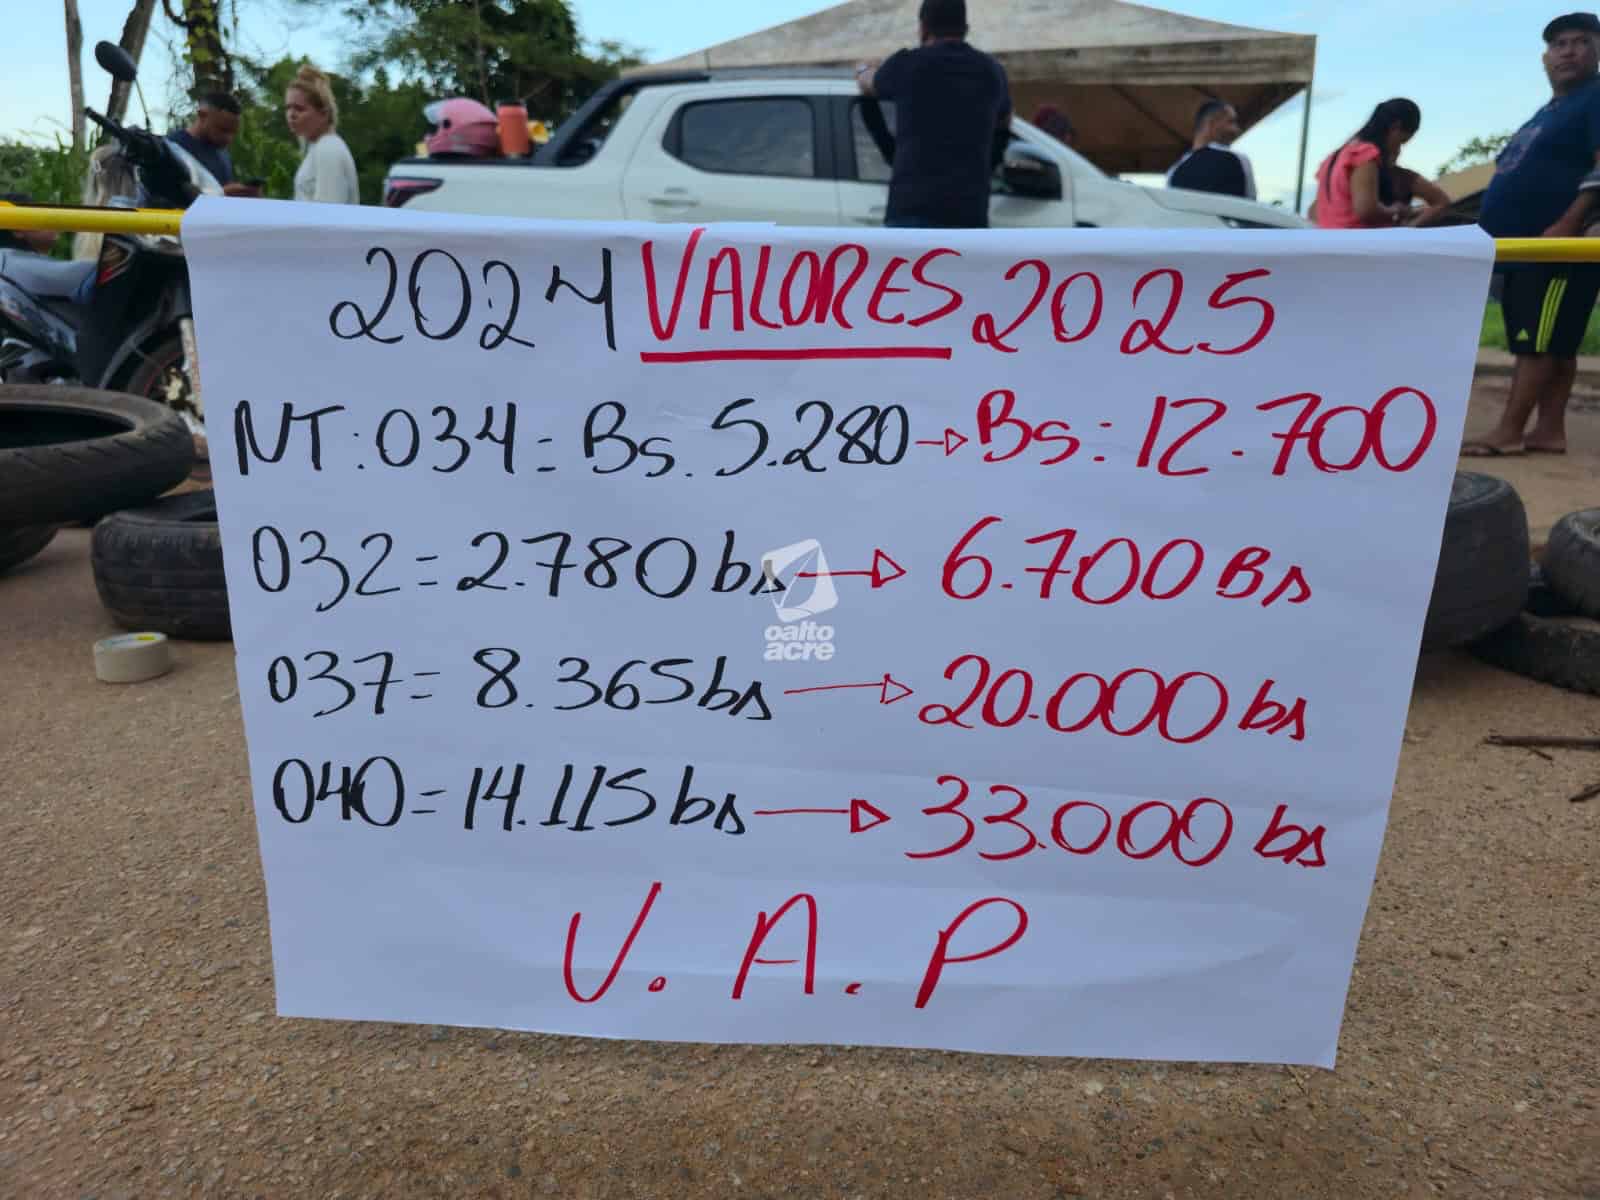 2024 VALORES 2025
NT:034= Bs. 5.280 → Bs: 12.700
032= 2.780 bs → 6.700 Bs
oalto
acre
037= 8.365 bs → 20.000 bs
040= 14.115 bs → 33.000 bs
V. A. P